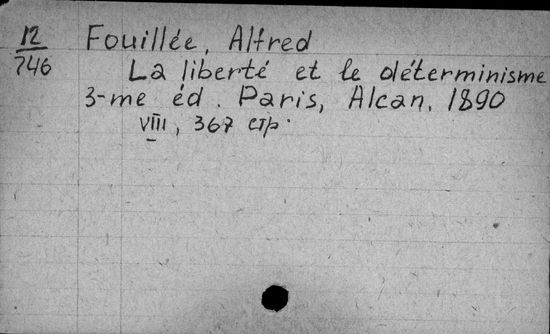 12/746
Fouillée, Alfred
La liberté et le déterminisme
3-me éd. Paris, Alcan, 1890
VIII, 367 стр.